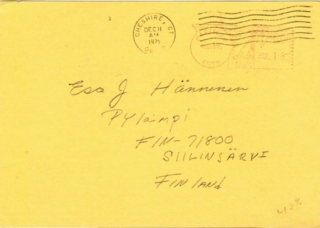 CHESHIRE, CT
DEC 11
AM
1975
Esa J Hänninen
Pylampi
FIN-71800
SIILINJÄRVI
FINLAND